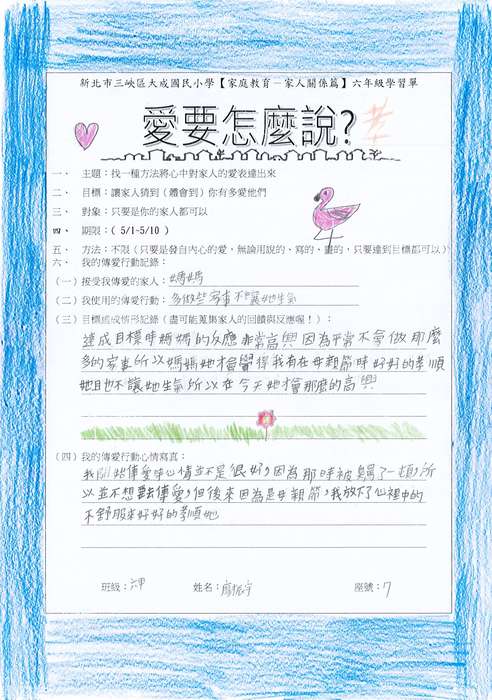 新北市三峽區大成國民小學【家庭教育－家人關係篇】六年級學習單
愛要怎麼說?
一、 主題：找一種方法將心中對家人的愛表達出來
二、 目標：讓家人猜到(體會到)你有多愛他們
三、 對象：只要是你的家人都可以
四、 期限：( 5/1-5/10 )
五、 方法：不限(只要是發自內心的愛，無論用說的、寫的、畫的，只要達到目標都可以)
六、 我的傳愛行動記錄：
(一)接受我傳愛的家人：媽媽
(二)我使用的傳愛行動：多做些家事不讓她生氣
(三)目標達成情形記錄(盡可能蒐集家人的回饋與反應喔！)：
達成目標時媽媽的反應非常高興因為平常不會做那麼
多的家事所以媽媽她才會覺得我有在母親節時好好的孝順
她且也不讓她生氣所以在今天她才會那麼的高興
(四)我的傳愛行動心情寫真：
我開始傳愛時心情並不是很好，因為那時被罵了一頓，所
以並不想去傳愛，但後來因為是母親節，我放下了心裡中的
不舒服來好好的孝順她
班級：六甲 姓名：廖 宇 座號：7